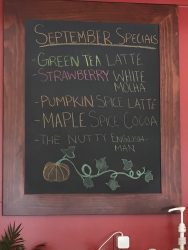 SEPTEMBER SPECIALS
-GREEN TEA LATTE
-STRAWBERRY WHITE
MOCHA
-PUMPKIN SPICE LATTE
-MAPLE SPICE COCOA
-THE NUTTY ENGLISH-
MAN